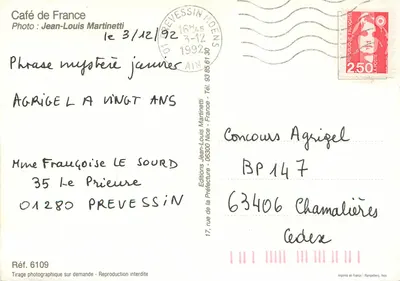 Café de France
Photo : Jean-Louis Martinetti
le 3/12/92
Phrase mystère janvier
AGRIGEL A VINGT ANS
Mme Françoise LE SOURD
35 Le Prieure
01280 PREVESSIN
Réf. 6109
Tirage photographique sur demande - Reproduction interdite
Editions Jean-Louis Martinetti
17, rue de la Préfecture - 06300 Nice - France - Tél. 93 85 61 30
PREVESSIN MOENS
3-12
1992
01 AIN
2,50
Concours Agrigel
BP 147
63406 Chamalières
Cedex